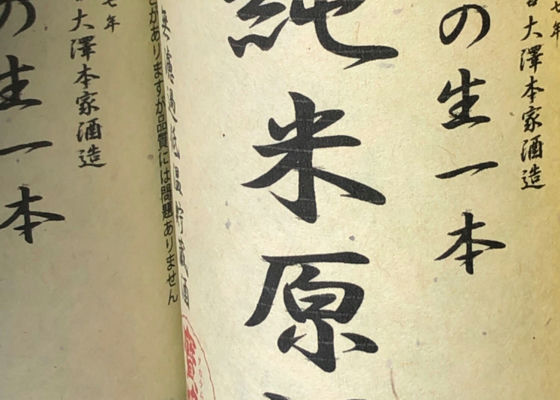 大澤本家酒造
の生一本
純米原
無濾過低温貯蔵酒
がありますが品質には問題ありません
七年
大澤本家酒造
の生一本